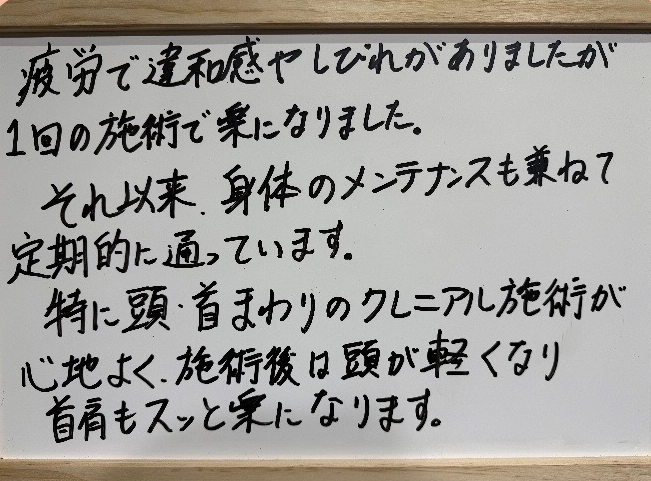 疲労で違和感やしびれがありましたが
1回の施術で楽になりました。
それ以来、身体のメンテナンスも兼ねて
定期的に通っています。
特に頭・首まわりのクレニアル施術が
心地よく、施術後は頭が軽くなり
首肩もスッと楽になります。